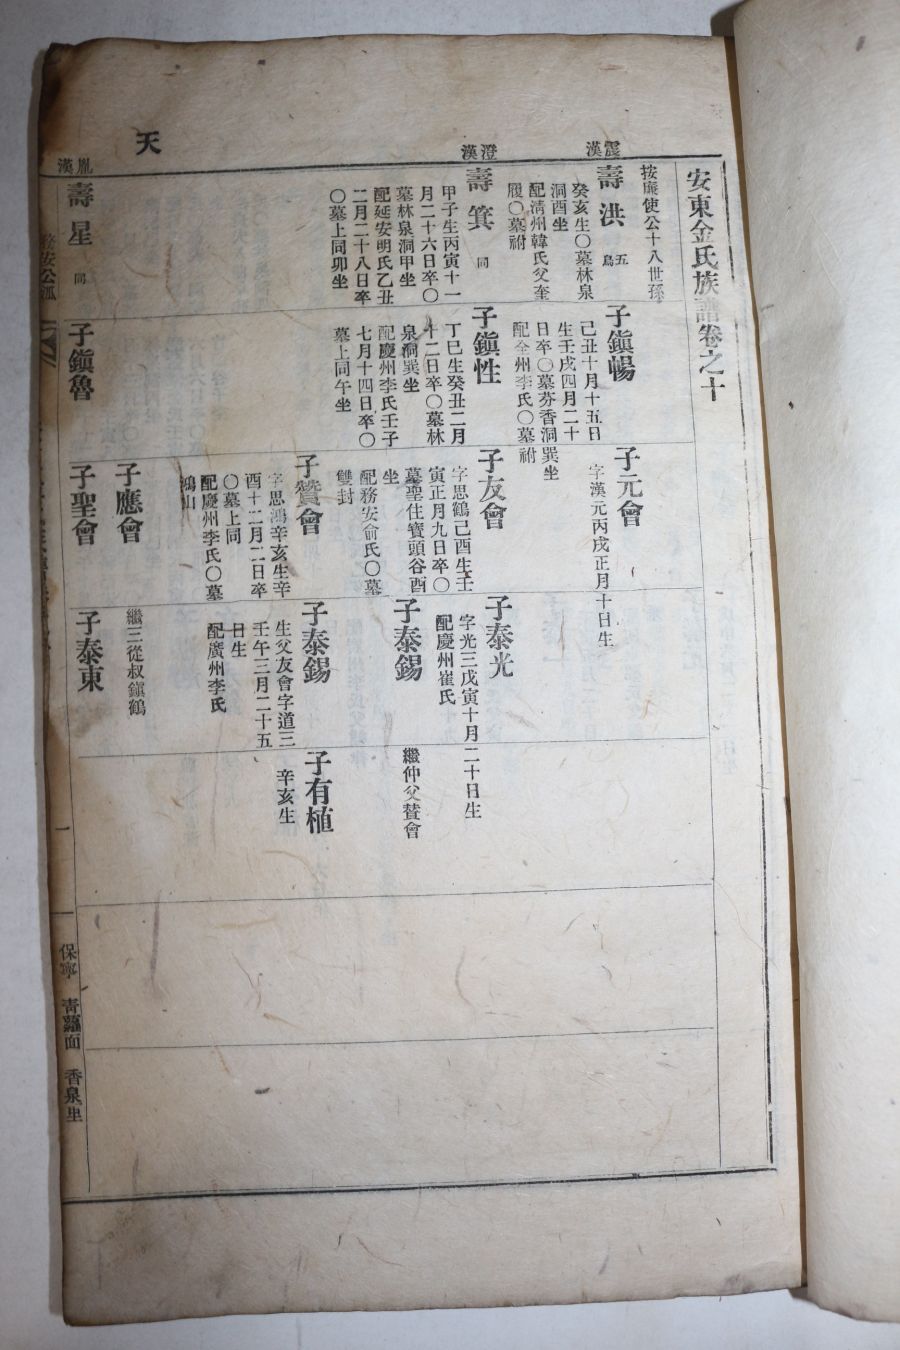 安東金氏族譜卷之十
按廉使公十八世孫
震漢
壽洪
五
鳥
癸亥生〇墓林泉
洞酉坐
配淸州韓氏父奎
履〇墓祔
子鎭暢
己丑十月十五日
生壬戌四月二十
日卒〇墓芬香洞巽坐
配全州李氏〇墓祔
子元會
字漢元丙戌正月十日生
澄漢
壽箕
同
甲子生丙寅十一
月二十六日卒〇
墓林泉洞甲坐
配延安明氏乙丑
二月二十八日卒
〇墓上同卯坐
子鎭性
丁巳生癸丑二月
十二日卒〇墓林
泉洞巽坐
配慶州李氏壬子
七月十四日卒〇
墓上同午坐
子友會
字思鶴己酉生壬
寅正月九日卒〇
墓聖住寶頭谷酉
坐
配務安俞氏〇墓
雙封
子泰光
字光三戊寅十月二十日生
配慶州崔氏
子泰錫
繼仲父贊會
子贊會
字思鴻辛亥生辛
酉十二月二日卒
〇墓上同
配慶州李氏〇墓
鴻山
子泰錫
生父友會字道三
壬午三月二十五
日生
配廣州李氏
子有植
辛亥生
子應會
繼三從叔鎭鶴
胤漢
壽星
同
子鎭魯
子聖會
子泰東
天
安公派
一
保寧 靑蘿面 香泉里